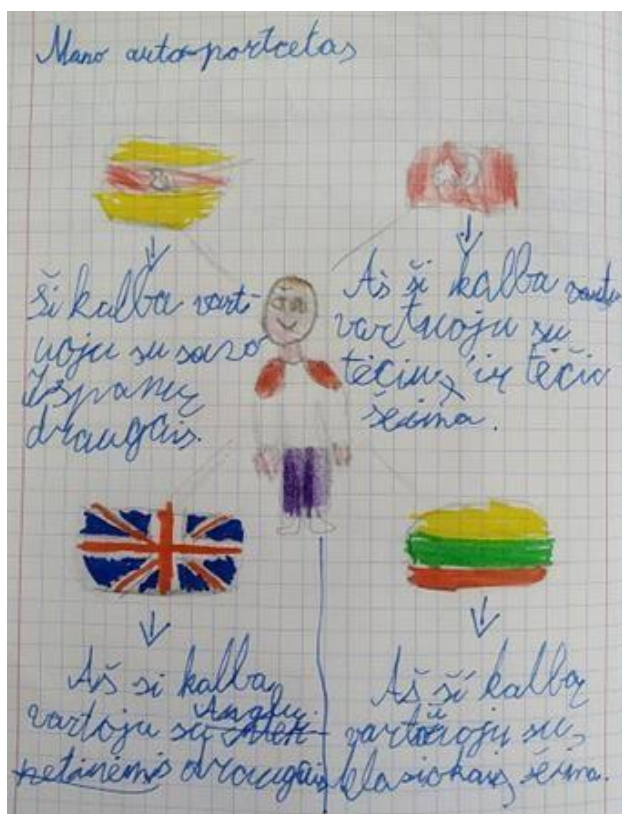 Mano auto-portretas
Ši kalba varti-
uoju su savo
Ispanų
draugais.
Aš ši kalba
vartuoju su
tėčiu, ir tėčio
šeima.
Aš si kalba
vartoju su Anglų
draugais
Aš ší kalbą
vartüoju su
klasiokais, šeima.